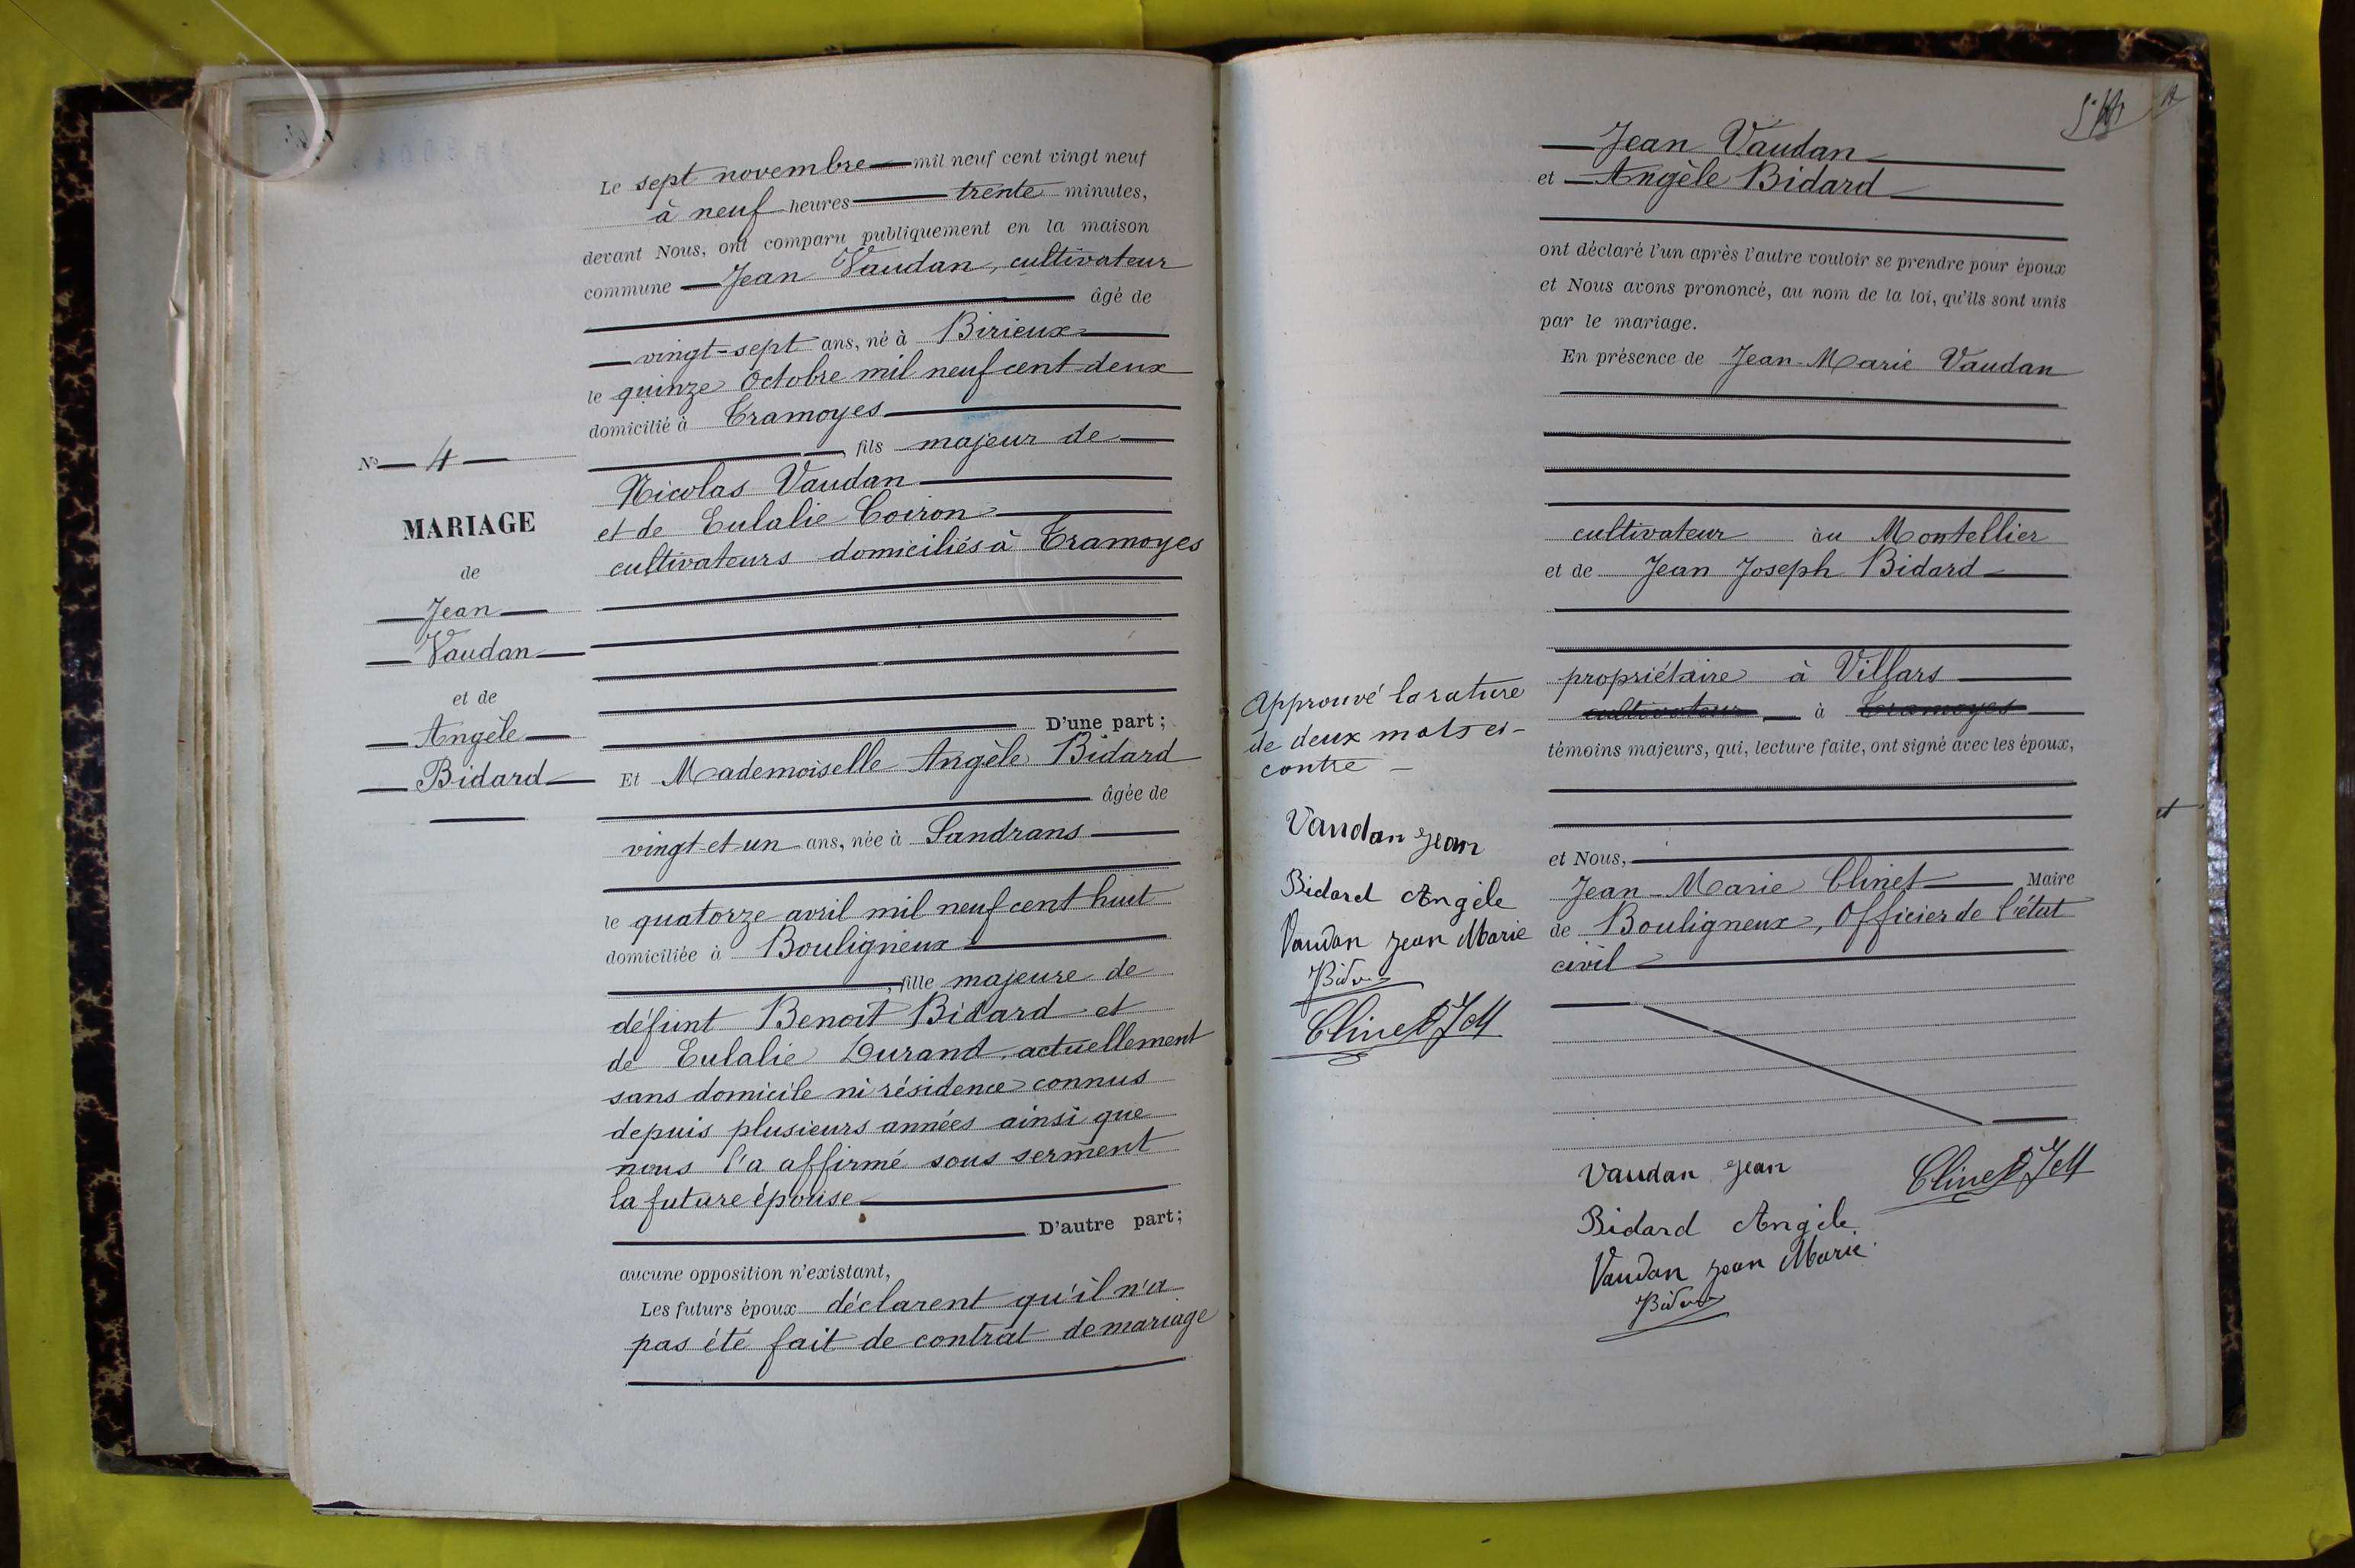 N° 4
MARIAGE
de
Jean
Vaudan
et de
Angèle
Bidard
Le sept novembre mil neuf cent vingt neuf
à neuf heures trente minutes,
devant Nous, ont comparu publiquement en la maison
commune Jean Vaudan, cultivateur
âgé de
vingt-sept ans, né à Birieux
le quinze Octobre mil neuf cent deux
domicilié à Tramoyes
, fils majeur de
Nicolas Vaudan
et de Eulalie Coiron
cultivateurs domiciliés à Tramoyes
D'une part;
Et Mademoiselle Angèle Bidard
âgée de
vingt-et-un ans, née à Sandrans
le quatorze avril mil neuf cent huit
domiciliée à Bouligneux
, fille majeure de
défunt Benoît Bidard et
de Eulalie Durand, actuellement
sans domicile ni résidence connus
depuis plusieurs années ainsi que
nous l'a affirmé sous serment
la future épouse
D'autre part;
aucune opposition n'existant,
Les futurs époux déclarent qu'il n'a
pas été fait de contrat de mariage
Jean Vaudan
et Angèle Bidard
ont déclaré l'un après l'autre vouloir se prendre pour époux
et Nous avons prononcé, au nom de la loi, qu'ils sont unis
par le mariage.
En présence de Jean-Marie Vaudan
cultivateur au Montellier
et de Jean Joseph Bidard
propriétaire à Villars
cultivateur à Tramoyes
témoins majeurs, qui, lecture faite, ont signé avec les époux,
et Nous,
Jean-Marie Clinet Maire
de Bouligneux, Officier de l'état
civil
Approuvé la rature
de deux mots ci-
contre
Vaudan Jean
Bidard Angèle
Vaudan Jean Marie
Clinet JM
Vaudan Jean
Clinet JM
Bidard Angèle
Vaudan Jean Marie